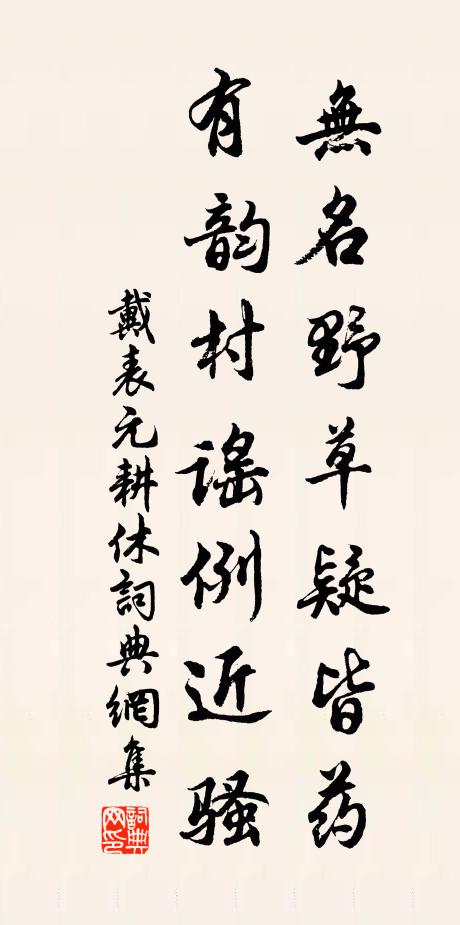 無名野草疑皆药
有韵村謡例近骚
戴表元耕休詞典網集
詞典网印